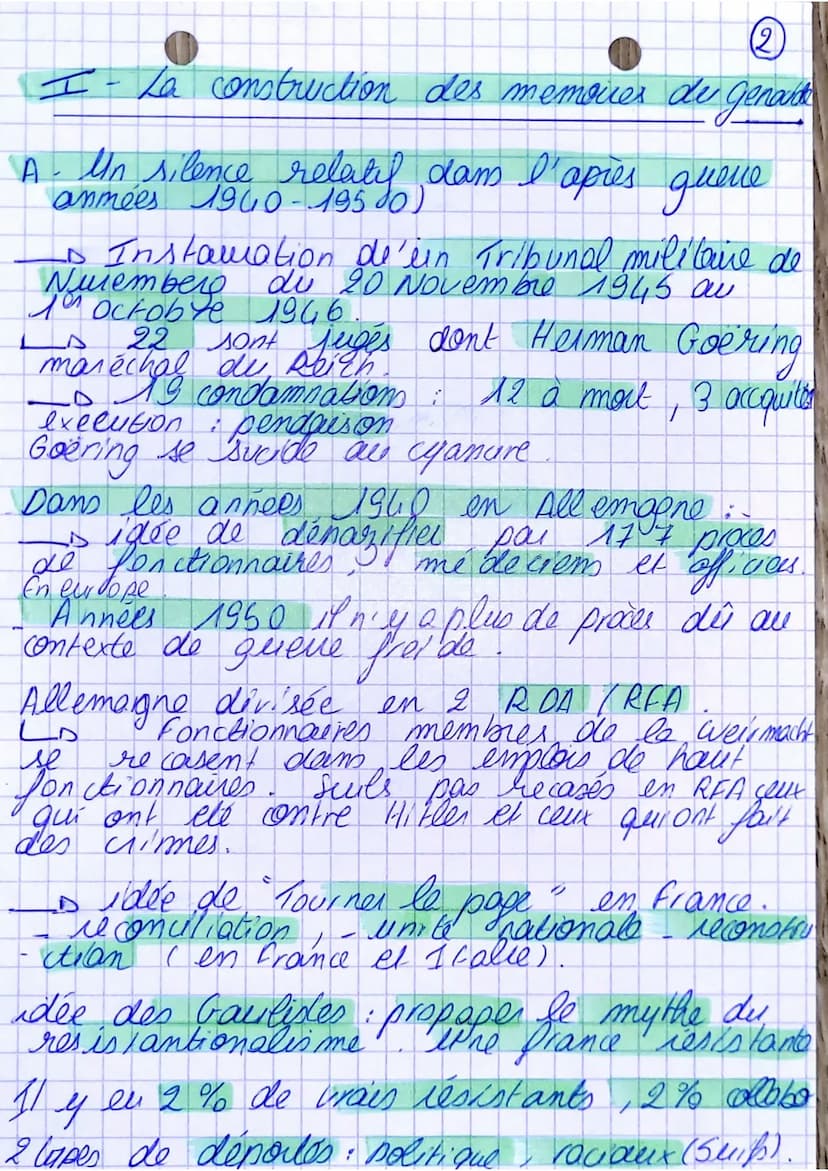 2
I - La construction des memoires du genocide
A - Un silence relatif dans l'après guerre
années 1940-1950)
→ Instauration de'un Tribunal militaire de
Nuremberg du 20 Novembre 1945 au
1er octobre 1946.
↳ 22 sont jugés dont Herman Goëring
maréchal du Reich.
→ 19 condamnations : 12 à mort, 3 acquités
éxécution : pendaison
Goëring se suicide au cyanure.
Dans les années 1940 en Allemagne :
→ idée de dénazifier par 177 procès
de fonctionnaires, médeciens et officiers.
En europe.
- Années 1950 il n'y a plus de procès dû au
contexte de guerre froide.
Allemagne divisée en 2 RDA / RFA.
↳ Fonctionnaires membres de la wehrmacht
se recasent dans les emplois de haut
fonctionnaires. Seuls pas recasés en RFA ceux
qui ont été contre Hitler et ceux qui ont fait
des crimes.
→ idée de "Tourner la page" en france.
- réconciliation, - unité nationale - reconstru
- ction (en france et Italie).
idée des Gaullistes : propager le mythe du
résistantionalisme. Une france résistante
Il y eu 2% de vrais résistants, 2% collabo
2 types de déportés : politique, raciaux (Juifs).